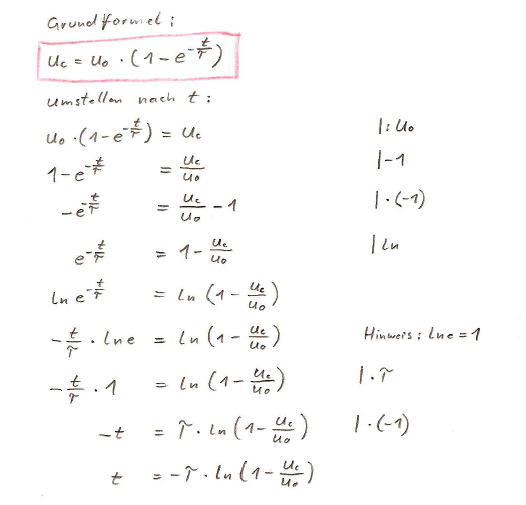 Grundformel :
Uc = U₀ · (1-e^(-t/τ))
umstellen nach t :
U₀ · (1-e^(-t/τ)) = Uc |: U₀
1-e^(-t/τ) = Uc/U₀ |-1
-e^(-t/τ) = Uc/U₀ -1 |·(-1)
e^(-t/τ) = 1- Uc/U₀ | ln
ln e^(-t/τ) = ln (1- Uc/U₀)
-t/τ · ln e = ln (1- Uc/U₀) Hinweis : ln e = 1
-t/τ · 1 = ln (1- Uc/U₀) |· τ
-t = τ · ln (1- Uc/U₀) |·(-1)
t = -τ · ln (1- Uc/U₀)